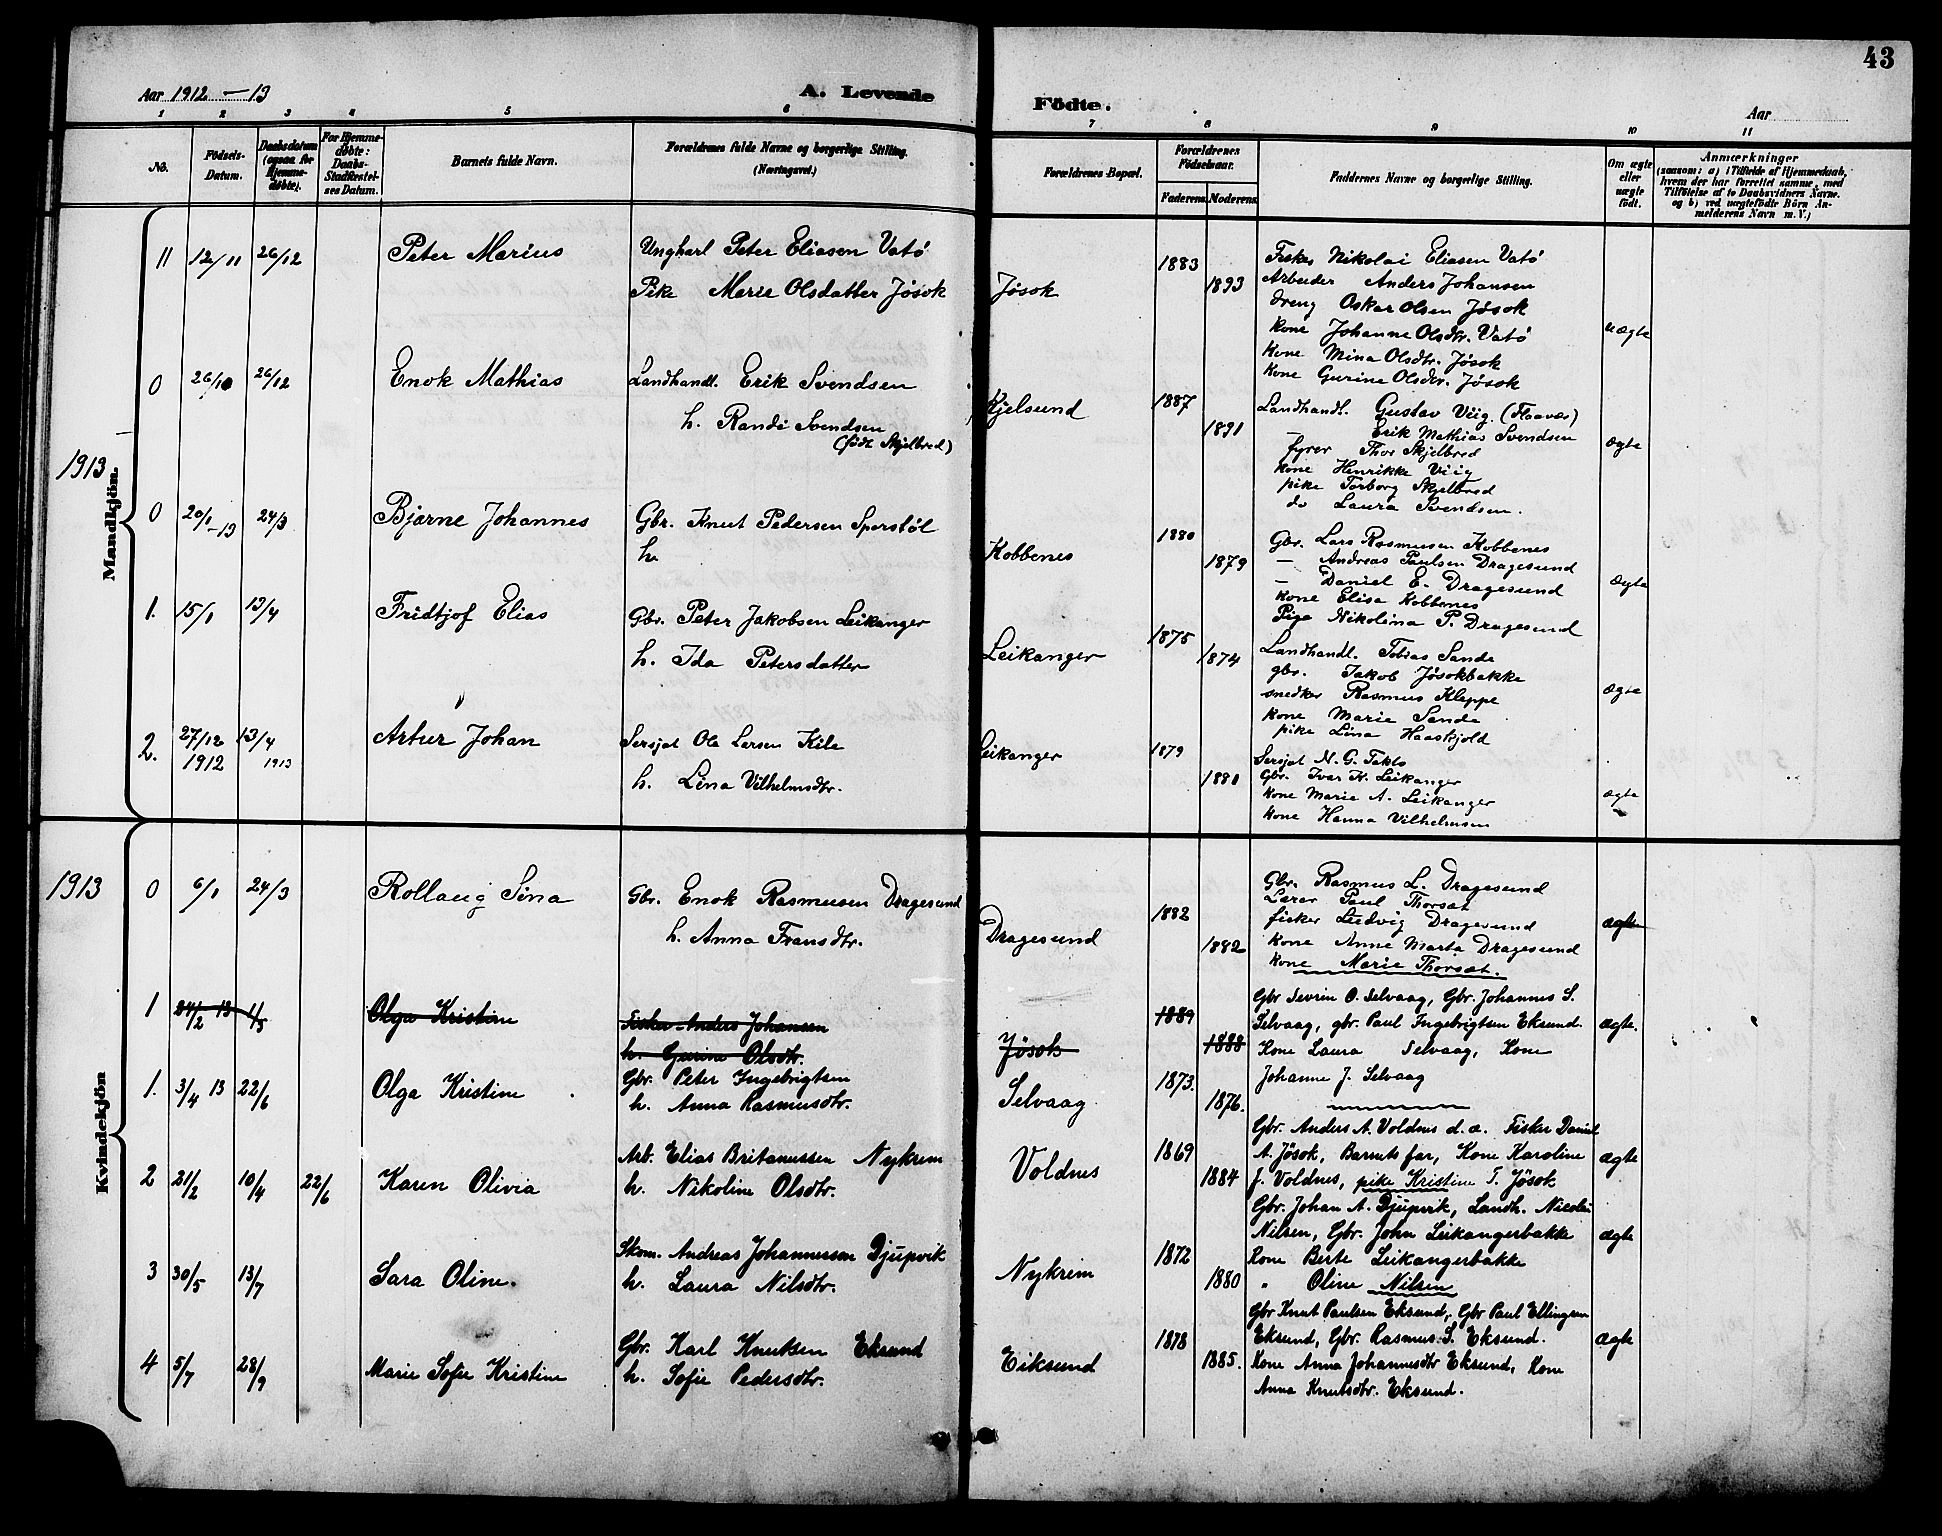 43
Aar 1912 – 13
A. Levende
Födte.
Aar
1 2 3 4 5 6
7 8 9 10 11
No.
Födsels-
Datum.
Daabsdatum
(ogsaa for
Hjemme-
døbte).
For Hjemme-
døbte:
Daabs-
Stadfæstel-
ses Datum.
Barnets fulde Navn.
Forældrenes fulde Navne og borgerlige Stilling.
(Næringsvei.)
Forældrenes Bopæl.
Forældrenes
Födselsaar.
Faderens. Moderens.
Faddernes Navne og borgerlige Stilling.
Om ægte
eller
uægte
født.
Anmærkninger
(saasom: a) i Tilfælde af Hjemmedaab,
hvem der har forrettet samme, med
Tilföielse af to Daabsvidners Navne.
og b) ved uægtefödte Börn An-
melderens Navn m. V.)
Mandkjön.
11 12/11 26/12 Peter Marius
Ungkarl Peter Eliasen Vatö
Pike Marie Olsdatter Jøsok
Jøsok
1883
1893
Fisker Nikolai Eliasen Vatö
Arbeider Anders Johansen
dreng Oskar Olsen Jøsok
kone Johanne Olsdtr. Vatö
Kone Mina Olsdtr. Jøsok
Kone Gurine Olsdtr. Jøsok
uægte
0 26/10 26/12 Enok Mathias
Landhandl. Erik Svendsen
h. Randi Svendsen
(født Skjelbred)
Kjelsund
1887
1891
Landhandl. Gustav Viig. (Flaavær)
Erik Mathias Svendsen
fyrer Thor Skjelbred
kone Henrikke Viig
pike Torborg Skjelbred
do Laura Svendsen.
ægte
1913
0 20/1 -13 24/3 Bjarne Johannes
Gbr. Knut Pedersen Sporstøl
h.
Kobbenes
1880
1879
Gbr. Lars Rasmussen Kobbenes
— Andreas Paulsen Dragesund
— Daniel E. Dragesund
kone Elisa Kobbenes
Pige Nikolina P. Dragesund
ægte
1. 15/1 13/4 Fridtjof Elias
Gbr. Peter Jakobsen Leikanger
h. Ida Petersdatter
Leikanger
1875
1874
Landhandl. Tobias Sande
gbr. Jakob Jøsokbakke
snedker Rasmus Kleppe
kone Marie Sande
pike Lina Haaskjold
ægte
2. 27/12 1912 13/4 1913 Artur Johan
Sersjat Ole Larsen Kile
h. Lina Vilhelmsdtr.
Leikanger
1879
1881
Sersjat N. G. Takts
Gbr. Ivar K. Leikanger
kone Marie A. Leikanger
kone Hanna Vilhelmsen
ægte
1913
Kvindekjön
0 6/1 24/3 Rollaug Sina
Gbr. Enok Rasmussen Dragesund
h. Anna Fransdtr.
Dragesund
1882
1882
Gbr. Rasmus L. Dragesund
Lærer Paul Thorsæt
fisker Ludvig Dragesund
kone Anne Marta Dragesund
kone Marie Thorsæt.
ægte
1 24/2 13 1/5 Olga Kristine
Fisker Anders Johansen
h. Gurine Olsdtr.
Jøsok
1889
1888
1. 3/4 13 22/6 Olga Kristine
Gbr. Peter Ingebrigtsen
h. Anna Rasmusdtr.
Selvaag
1873.
1876.
Gbr Sevrin O. Selvaag, Gbr. Johannes S.
Selvaag, gbr. Paul Ingebrigtsen Eksund.
Kone Laura Selvaag, Kone
Johanne J. Selvaag
ægte.
2 21/2 10/4 22/6 Karen Olivia
Arb. Elias Britanussen Nykrem
h. Nikoline Olsdtr.
Voldnes
1869
1884
Gbr. Anders A. Voldnes d.æ. Fisker Daniel
A. Jøsok, Barnets far, Kone Karoline
J. Voldnes, pike Kristine T. Jøsok
ægte
3 30/5 13/7 Sara Oline.
Skom. Andreas Johannessen Djupvik
h. Laura Nilsdtr.
Nykrem
1872
1880
Gbr. Johan A. Djupvik, Landh. Nicolai
Nilsen, Gbr. John Leikangerbakke
Kone Berte Leikangerbakke
" Oline Nilsen
ægte
4 5/7 28/9 Marie Sofie Kristine
Gbr. Karl Knutsen Eksund
h. Sofie Pedersdtr.
Eiksund
1878
1885.
Gbr Knut Paulsen Eksund, Gbr Paul Ellingsen
Eksund, Gbr. Rasmus S. Eksund.
Kone Anna Johannesdtr Eksund, Kone
Anna Knutsdtr. Eksund.
ægte